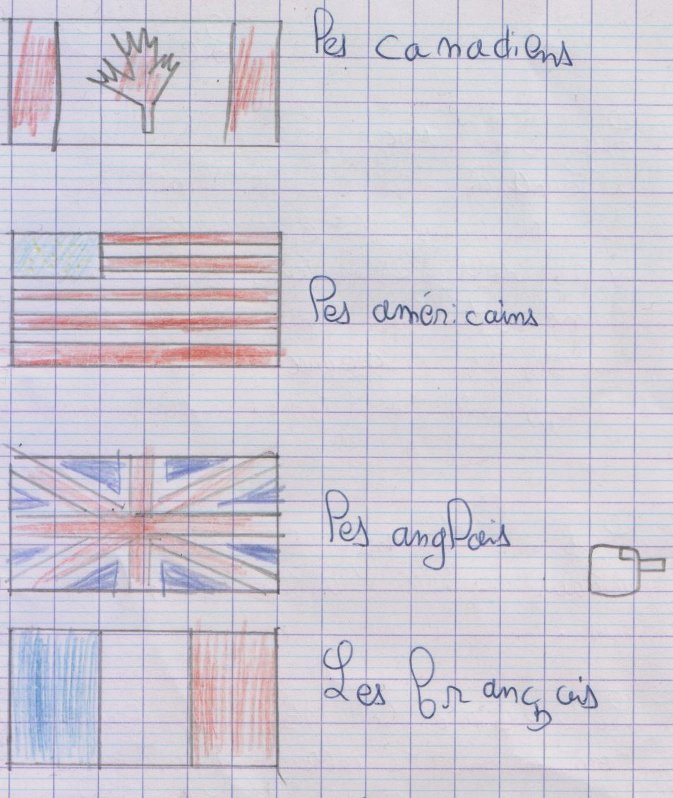 les canadiens
les américains
les anglais
Les français